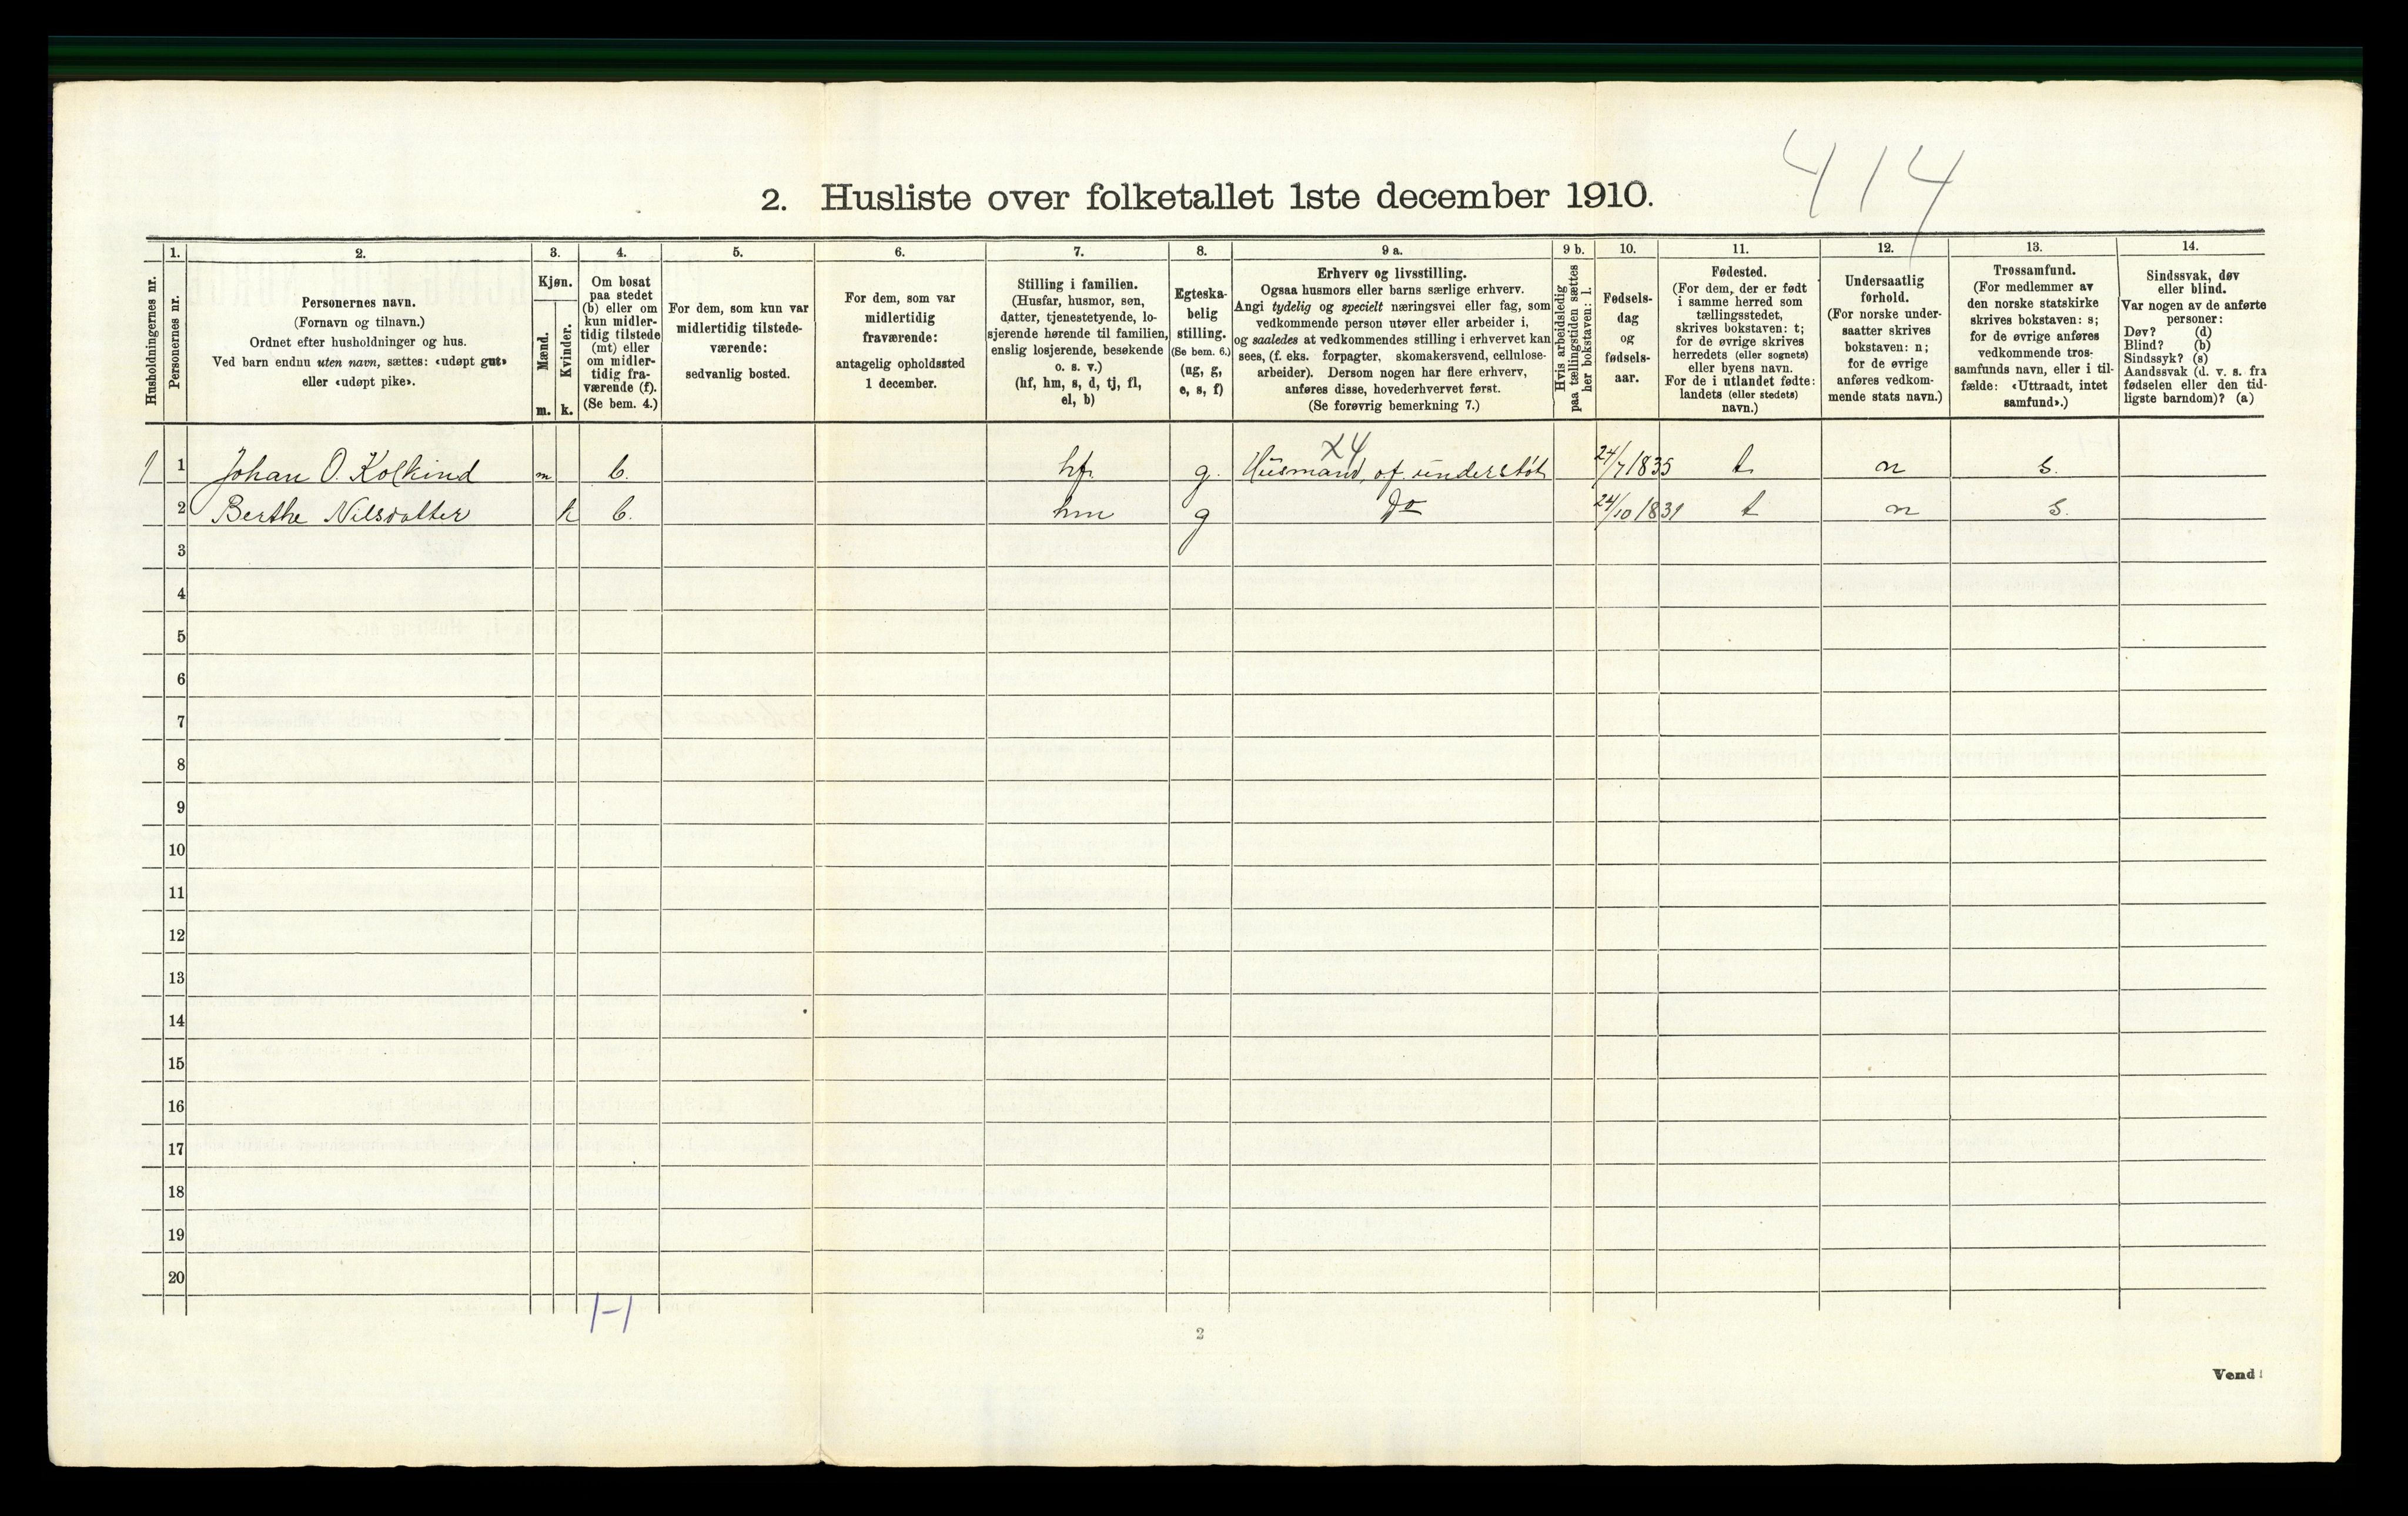 414
2. Husliste over folketallet 1ste december 1910.
Husholdningernes nr.
1.
Personernes nr.
2.
Personernes navn.
(Fornavn og tilnavn.)
Ordnet efter husholdninger og hus.
Ved barn endnu uten navn, sættes: «udøpt gut»
eller «udøpt pike».
3.
Kjøn.
Mænd.
m.
Kvinder.
k.
4.
Om bosat
paa stedet
(b) eller om
kun midler-
tidig tilstede
(mt) eller
om midler-
tidig fra-
værende (f).
(Se bem. 4.)
5.
For dem, som kun var
midlertidig tilstede-
værende:
sedvanlig bosted.
6.
For dem, som var
midlertidig
fraværende:
antagelig opholdssted
1 december.
7.
Stilling i familien.
(Husfar, husmor, søn,
datter, tjenestetyende, lo-
sjerende hørende til familien,
enslig losjerende, besøkende
o. s. v.)
(hf, hm, s, d, tj, fl,
el, b)
8.
Egteska-
belig
stilling.
(Se bem. 6.)
(ug, g,
e, s, f)
9 a.
Erhverv og livsstilling.
Ogsaa husmors eller barns særlige erhverv.
Angi tydelig og specielt næringsvei eller fag, som
vedkommende person utøver eller arbeider i,
og saaledes at vedkommendes stilling i erhvervet kan
sees, (f. eks. forpagter, skomakersvend, cellulose-
arbeider). Dersom nogen har flere erhverv,
anføres disse, hovederhvervet først.
(Se forøvrig bemerkning 7.)
9 b.
Hvis arbeidsledig
paa tællingstiden sættes
her bokstaven: l.
10.
Fødsels-
dag
og
fødsels-
aar.
11.
Fødested.
(For dem, der er født
i samme herred som
tællingsstedet,
skrives bokstaven: t;
for de øvrige skrives
herredets (eller sognets)
eller byens navn.
For de i utlandet fødte:
landets (eller stedets)
navn.)
12.
Undersaatlig
forhold.
(For norske under-
saatter skrives
bokstaven: n;
for de øvrige
anføres vedkom-
mende stats navn.)
13.
Trossamfund.
(For medlemmer av
den norske statskirke
skrives bokstaven: s;
for de øvrige anføres
vedkommende tros-
samfunds navn, eller i til-
fælde: «Uttraadt, intet
samfund».)
14.
Sindssvak, døv
eller blind.
Var nogen av de anførte
personer:
Døv? (d)
Blind? (b)
Sindssyk? (s)
Aandssvak (d. v. s. fra
fødselen eller den tid-
ligste barndom)? (a)
X4
1 1 Johan O. Kolkind m b. hf. g. Husmand, of. understøt 24/7 1835 t. n s.
2 Berthe Nilsdatter k b. hm g Do 24/10 1831 t n s.
3
4
5
6
7
8
9
10
11
12
13
14
15
16
17
18
19
20
1-1
2
Vend!